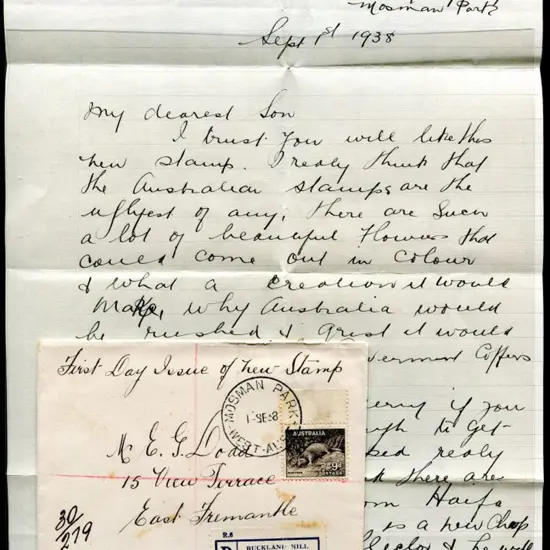 Mosman Park
Sept 1st 1938
My dearest Son
I trust you will like this
new stamp. I realy think that
the Australian stamps are the
uglyest of any, there are such
a lot of beautiful Flowers that
could come out in colour
& what a creation it would
Make, why Australia would
be rushed & Grist it would
Government Coffers
First Day Issue of new Stamp
MOSMAN PARK
1-SE-38
WEST-AUST
AUSTRALIA
9D
Mr E. G. Dodd
15 View Terrace
East Fremantle
30/279
R.6
R
BUCKLAND HILL
if you
to get
realy
there are
from Haifa
is a new Chap